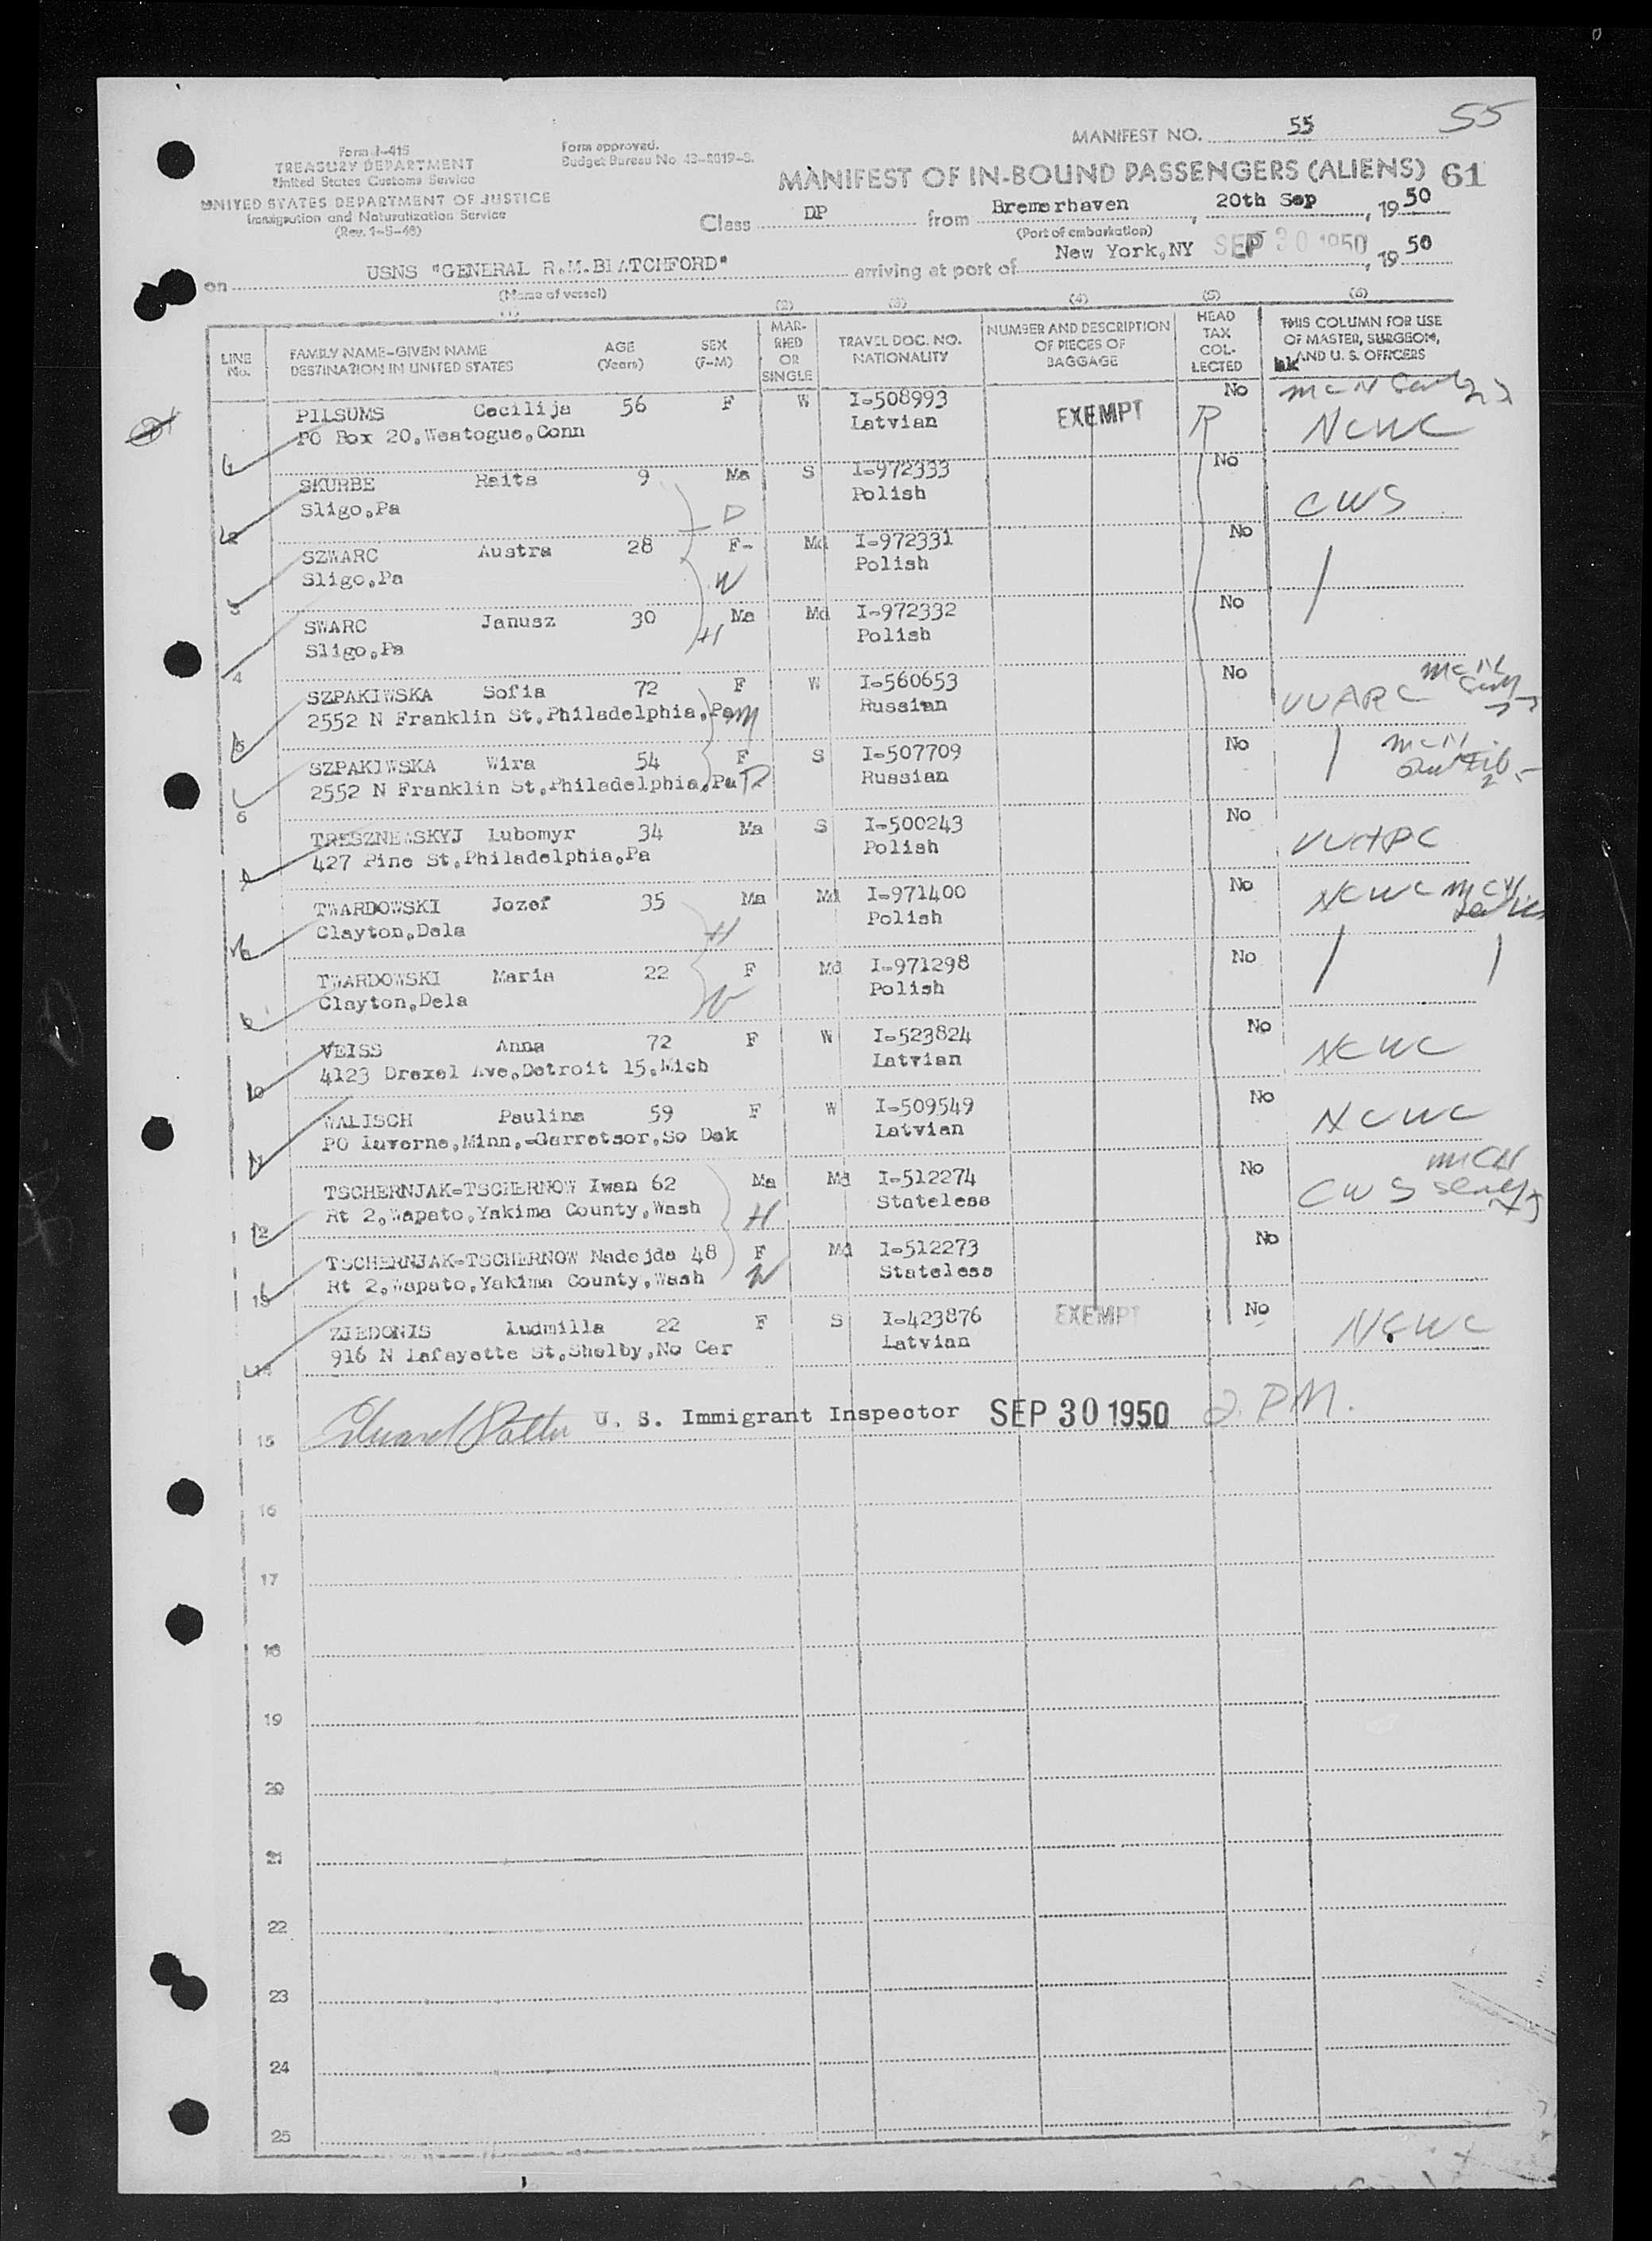 55
MANIFEST NO. 55
Form I-415
TREASURY DEPARTMENT
United States Customs Service
UNITED STATES DEPARTMENT OF JUSTICE
Immigration and Naturalization Service
(Rev. 1-5-48)
Form approved.
Budget Bureau No. 43-R019-3.
MANIFEST OF IN-BOUND PASSENGERS (ALIENS) 61
Class DP from Bremerhaven, 20th Sep, 1950
(Port of embarkation)
on USNS "GENERAL R.M.BLATCHFORD" arriving at port of New York,NY SEP 30 1950, 1950
(Name of vessel)
(1) (2) (3) (4) (5) (6)
LINE No.
FAMILY NAME-GIVEN NAME
DESTINATION IN UNITED STATES
AGE (Years)
SEX (F-M)
MARRIED OR SINGLE
TRAVEL DOC. NO. NATIONALITY
NUMBER AND DESCRIPTION OF PIECES OF BAGGAGE
HEAD TAX COLLECTED
THIS COLUMN FOR USE OF MASTER, SURGEON, AND U. S. OFFICERS
PILSUMS Cecilija 56 F W I-508993 EXEMPT No R
PO Box 20,Weatogue,Conn Latvian NCWC
1
SKURBE Raits 9 Ma S I-972333 No
Sligo,Pa D Polish CWS
2
SZWARC Austra 28 F- Md I-972331 No
Sligo,Pa W Polish
3
SWARC Janusz 30 Ma Md I-972332 No
Sligo,Pa H Polish
4
SZPAKIWSKA Sofia 72 F W I-560653 No
2552 N Franklin St,Philadelphia,Pa M Russian UUARC
5
SZPAKIWSKA Wira 54 F S I-507709 No
2552 N Franklin St,Philadelphia,Pa D Russian
6
TRESZNEWSKYJ Lubomyr 34 Ma S I-500243 No
427 Pine St,Philadelphia,Pa Polish UUARC
7
TWARDOWSKI Jozef 35 Ma Md I-971400 No
Clayton,Dela H Polish NCWC
8
TWARDOWSKI Maria 22 F Md I-971298 No
Clayton,Dela W Polish
9
VEISS Anna 72 F W I-523824 No
4123 Drexel Ave,Detroit 15,Mich Latvian NCWC
10
WALISCH Paulina 59 F W I-509549 No
PO Luverne,Minn,-Garretsor,So Dak Latvian NCWC
11
TSCHERNJAK-TSCHERNOW Iwan 62 Ma Md I-512274 No
Rt 2,Wapato,Yakima County,Wash H Stateless CWS
12
TSCHERNJAK-TSCHERNOW Nadejda 48 F Md I-512273 No
Rt 2,Wapato,Yakima County,Wash W Stateless
13
ZIEDONIS Ludmilla 22 F S I-423876 EXEMPT No
916 N Lafayette St,Shelby,No Car Latvian NCWC
14
15 U. S. Immigrant Inspector SEP 30 1950 2 PM.
16
17
18
19
20
21
22
23
24
25